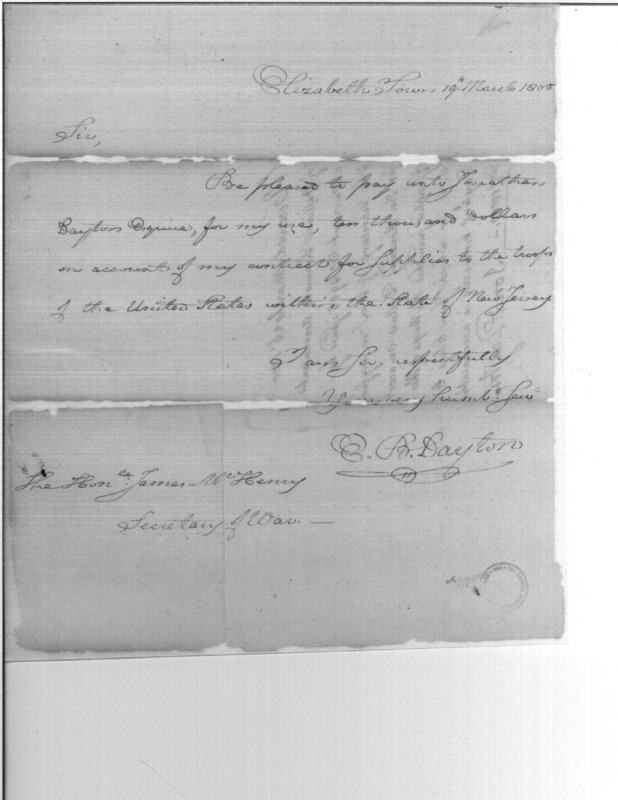 Elizabeth Town 19th March 1800
Sir,
Be pleased to pay unto Jonathan
Dayton Esquire, for my use, ten thousand Dollars
on account of my contract for Supplies to the troops
of the United States within the State of New Jersey
I am Sir respectfully
Your very humbe. Servt
E. B. Dayton
The Honble. James McHenry
Secretary of War. —